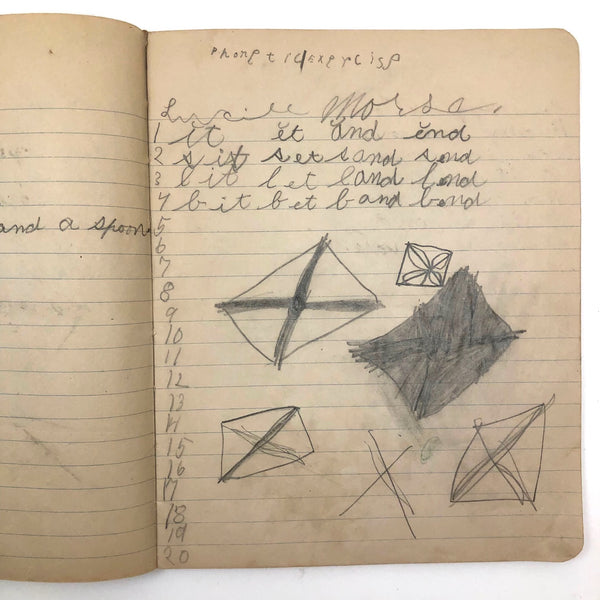 and a spoon
phonetic exercise
Lucille Morse.
1 ĭt ĕt ănd ĕnd
2 sit set sand send
3 lit let land lend
4 bit bet band bend
5
6
7
8
9
10
11
12
13
14
15
16
17
18
19
20